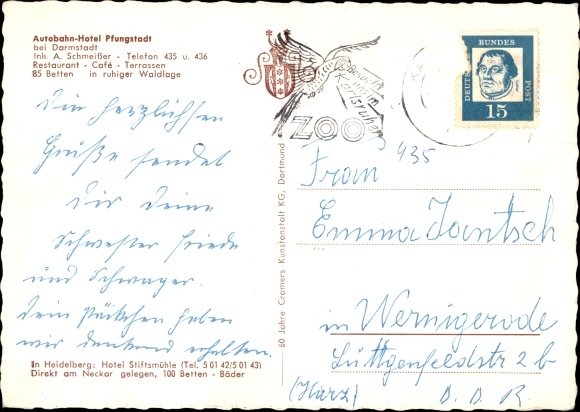 Autobahn-Hotel Pfungstadt
bei Darmstadt
Inh. A. Schmeißer - Telefon 435 u. 436
Restaurant - Café - Terrassen
85 Betten in ruhiger Waldlage
Die herzlichsten
Grüße sendet
Dir Deine
Schwester Friede
und Schwager.
Dein Päckchen haben
wir dankend erhalten.
In Heidelberg: Hotel Stiftsmühle (Tel. 5 01 42/5 01 43)
Direkt am Neckar gelegen, 100 Betten - Bäder
60 Jahre Cramers Kunstanstalt KG, Dortmund
Karlsruher
ZOO
DEUTSCHE
BUNDES
POST
15
435
Frau
Emma Jantsch
in Wernigerode
Lüttgenfeldstr 2 b
(Harz) D. D. R.